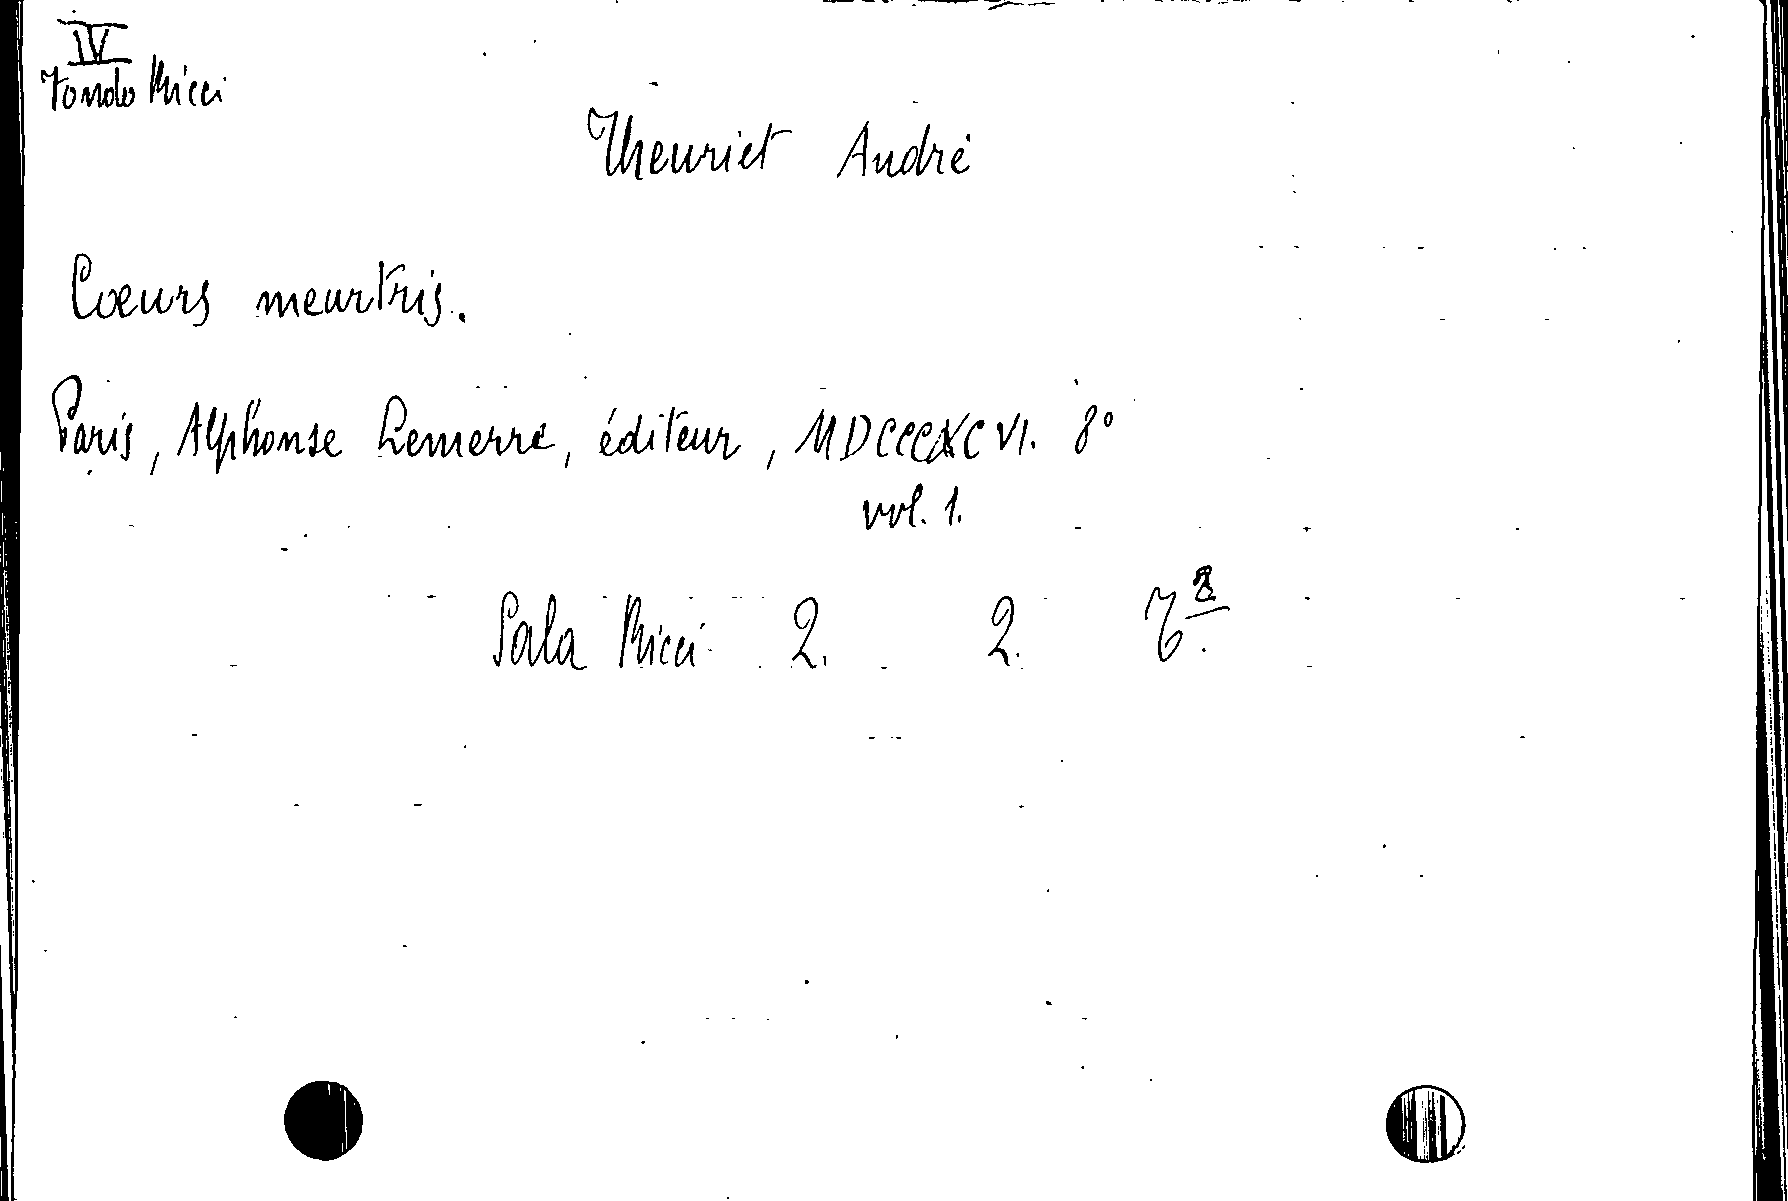 IV
Fondo Ricci
Theuriet André
Cœurs meurtris.
Paris, Alphonse Lemerre, éditeur, MDCCCXCVI. 8°
vol. 1.
Sala Ricci 2. 2.